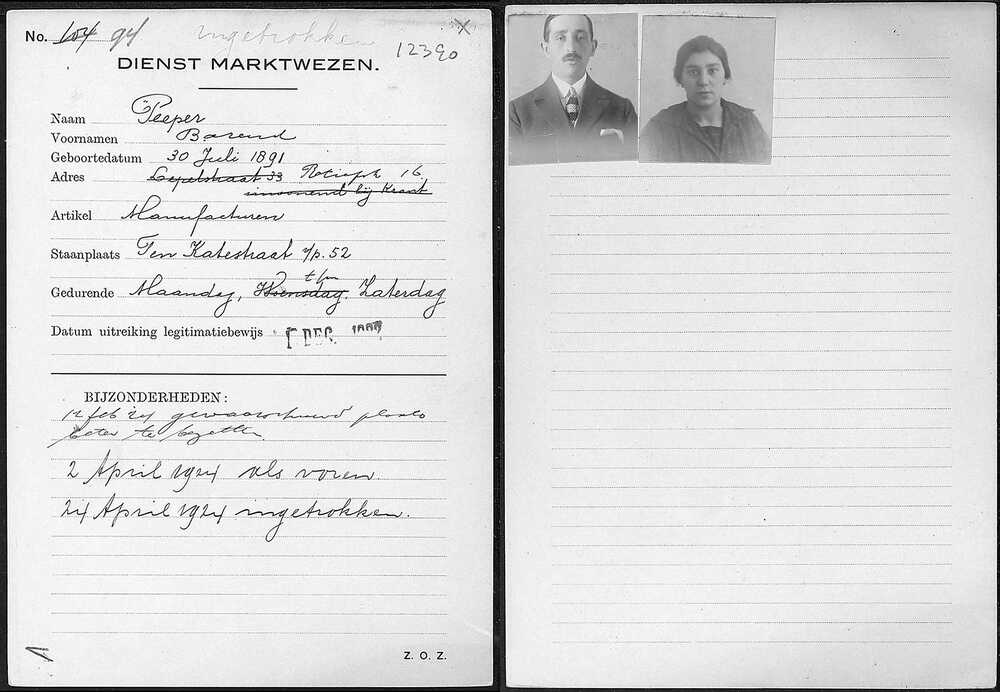 No. 104 94 ingetrokken x
12390
DIENST MARKTWEZEN.
Naam Peeper
Voornamen Barend
Geboortedatum 30 Juli 1891
Adres Lepelstraat 33 Retiefstr 16
inwonend bij Krant
Artikel Manufacturen
Staanplaats Ten Katestraat v/p. 52
t/m
Gedurende Maandag, Woensdag. Zaterdag
Datum uitreiking legitimatiebewijs 1 DEC.
BIJZONDERHEDEN:
12 feb 24 gewaarschuwd plaats
beter te bezetten.
2 April 1924 als voren.
24 April 1924 ingetrokken.
Z. O. Z.